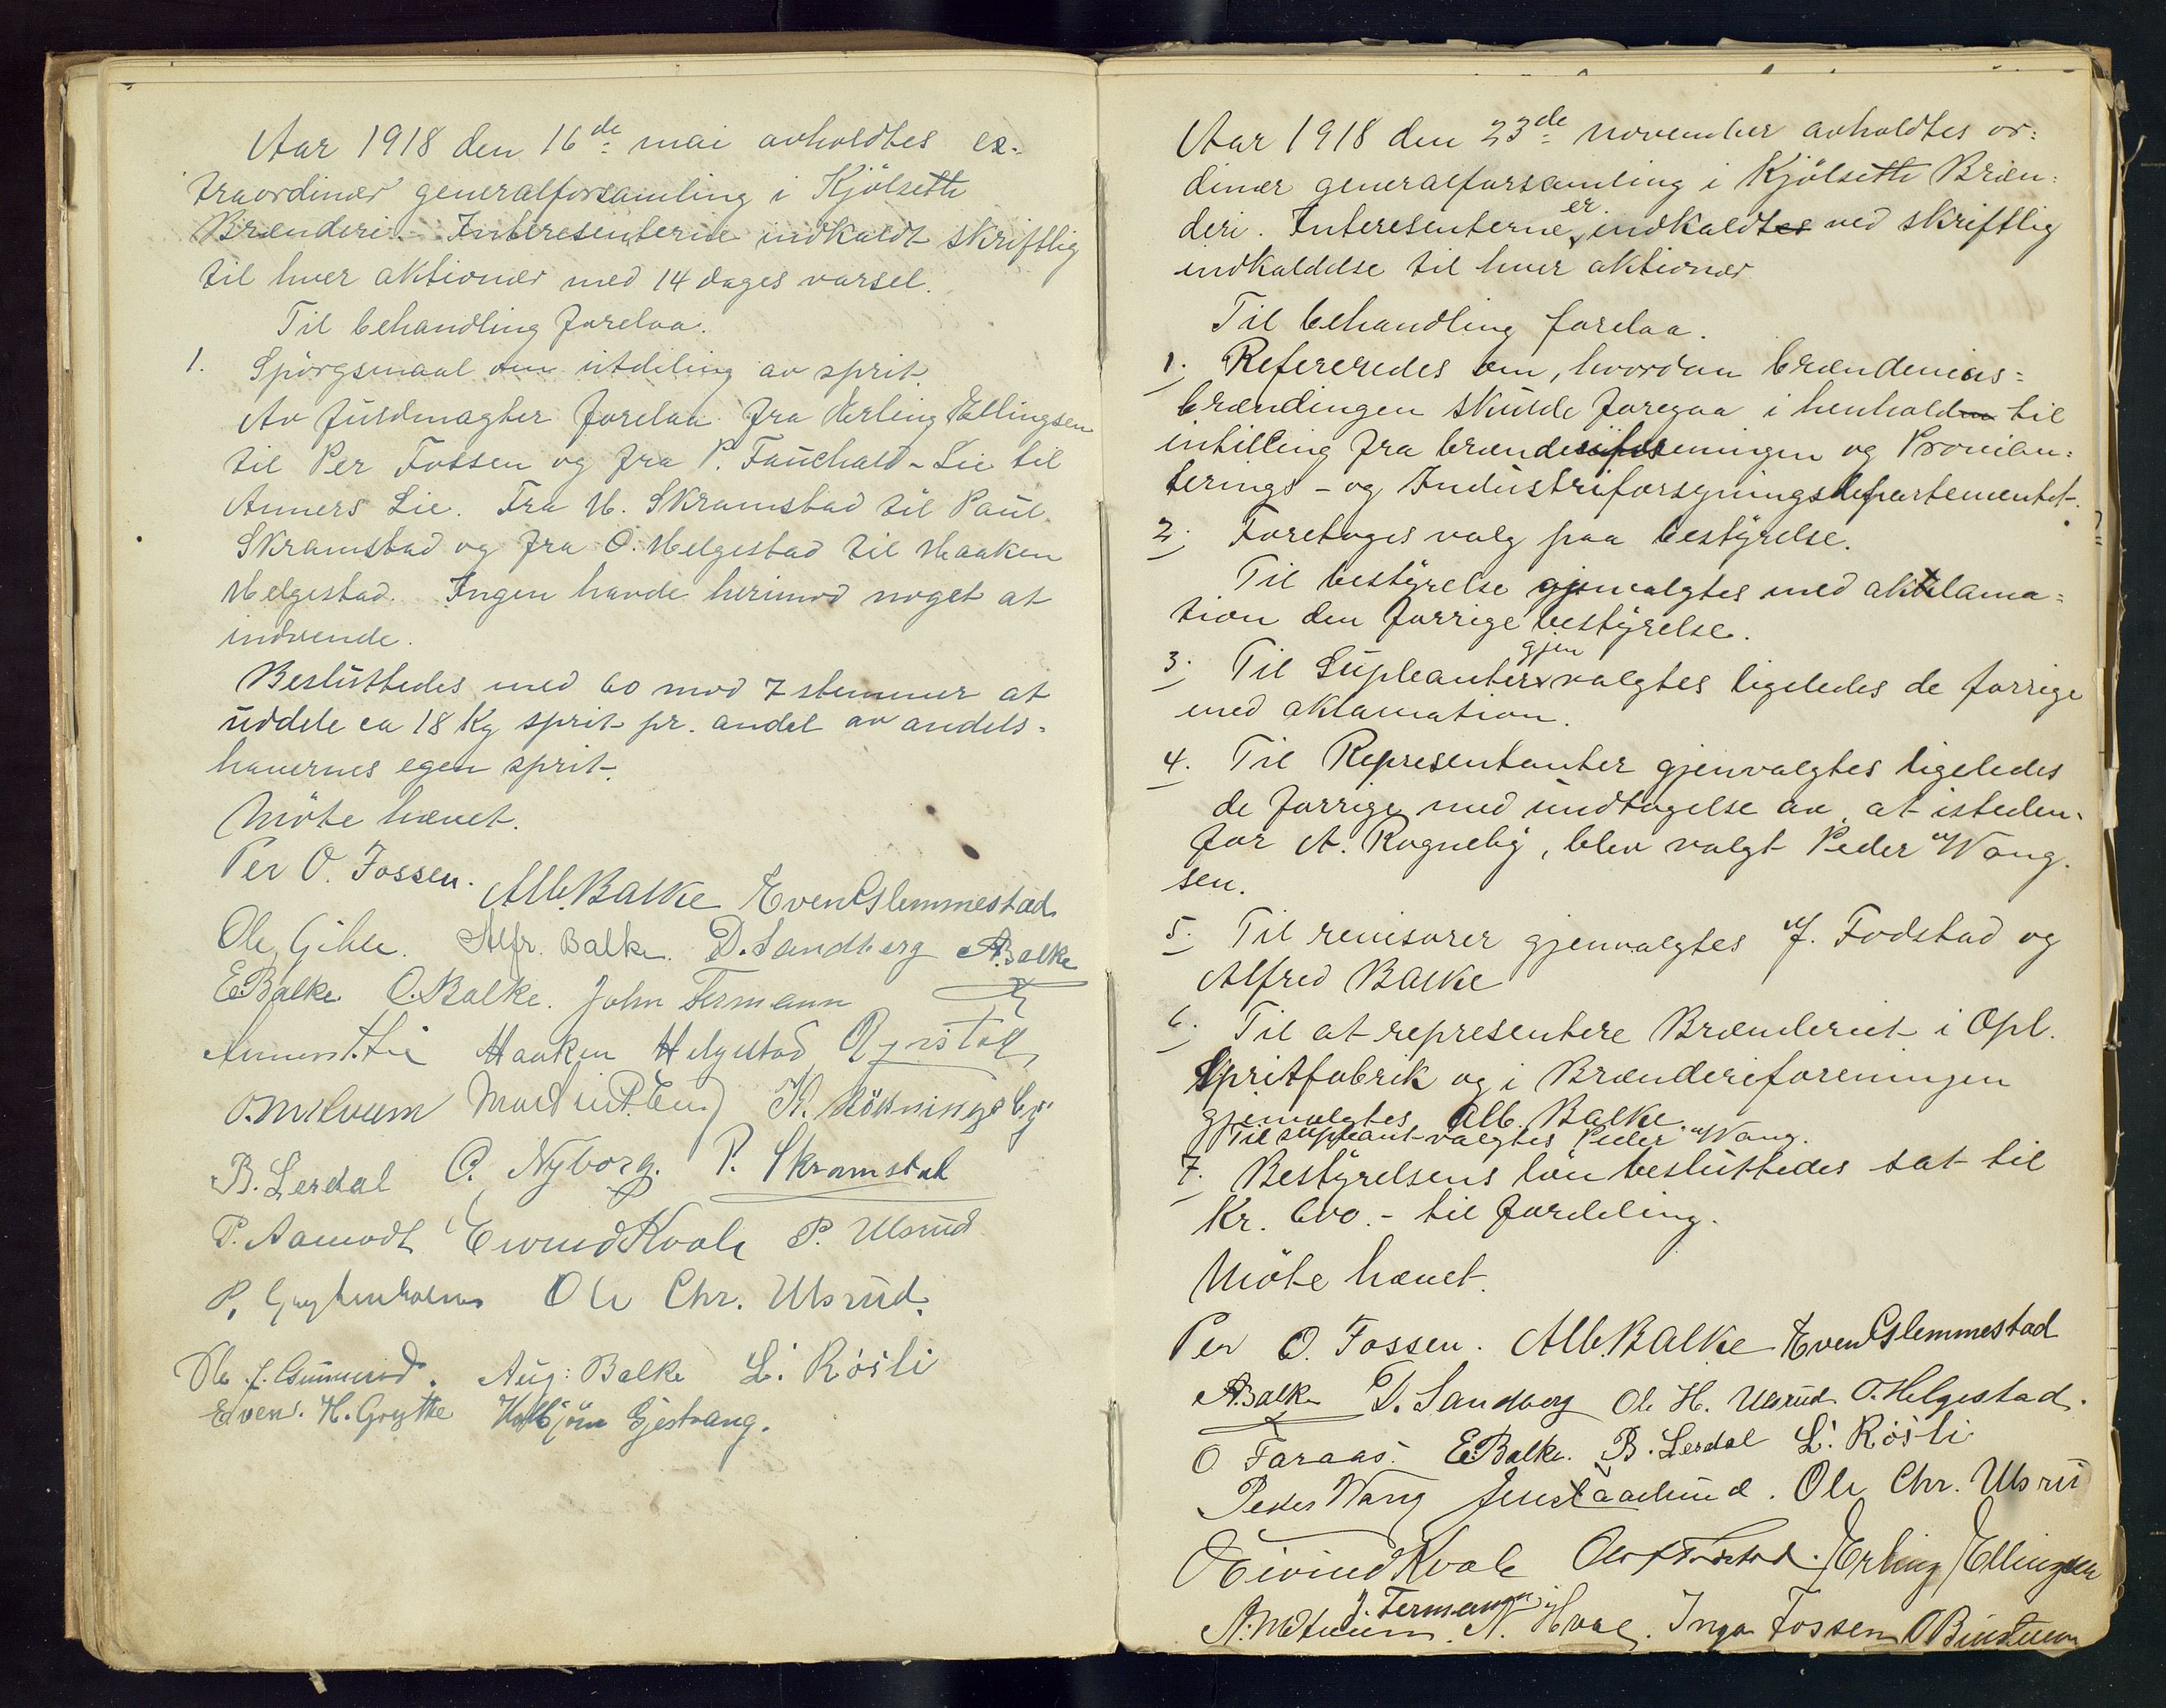 Aar 1918 den 16de mai avholdtes ex-
traordinær generalforsamling i Kjölseth
Brænderi. Interesenterne indkaldt skriftlig
til hver aktionær med 14 dages varsel.
Til behandling forelaa.
1. Spörgsmaal om utdeling av sprit.
Av fuldmagter forelaa fra Erling Ellingsen
til Per Fossen og fra P. Fauchald-Lie til
Anners Lie. Fra H. Skramstad til Paul
Skramstad og fra O. Helgestad til Haaken
Helgestad. Ingen havde herimod noget at
indvende.
Besluttedes med 60 mod 7 stemmer at
uddele ca 18 Kg sprit pr. andel av andels-
havernes egen sprit.
Möte hævet.
Per O. Fossen. Alb. Balke Even Glemmestad
Ole Gihle. Alfr. Balke. D. Sandberg A. Balke
E. Balke O. Balke. John Fermann
Haaken Helgestad
B. Lerdal O. Nyborg. P. Skramstad
P. Aamodt Eivind Kvale P. Ulsrud
P. Ole Chr. Ulsrud.
Aug: Balke L. Rösli
Even. H. Grythe Kolbjörn Gjestvang.
Aar 1918 den 23de november avholdtes or=
dinær generalforsamling i Kjölseth Bræn=
deri. Interesenterne er indkaldtes ved skriftlig
indkaldelse til hver aktionær
Til behandling forelaa.
1. Refereredes om, hvordan brænderiets=
brændingen skulde foregaa i henholden til
instilling fra brænderiforeningen og Provian=
terings- og Industriforsyningsdepartementet.
2. Foretoges valg paa bestyrelse.
Til bestyrelse gjenvalgtes med aklama=
tion den forrige bestyrelse.
3. Til Supleanter gjenvalgtes ligeledes de forrige
med aklamation.
4. Til Representanter gjenvalgtes ligeledes
de forrige med undtagelse av at isteden-
for A. Rogneby, blev valgt Peder Wang.
sen.
5. Til revisorer gjenvalgtes J. Fodstad og
Alfred Balke
6. Til at representere Brænderiet i Opl.
Spritfabrik og i Brænderiforeningen
gjenvalgtes Alb. Balke.
Til supleant valgtes Peder Wang.
7. Bestyrelsens lön besluttedes sat til
Kr. 600.- til fordeling.
Möte hævet.
Per O. Fossen. Alb. Balke Even Glemmestad
A. Balke D. Sandberg Ole H. Ulsrud O. Helgestad.
O Faraas. E. Balke. B. Lerdal L. Rösli
Peder Wang Ole Chr. Ulsru
Eivind Kvale Erling Ellingsen
J. Fermann
N. Hval. Inga Fossen